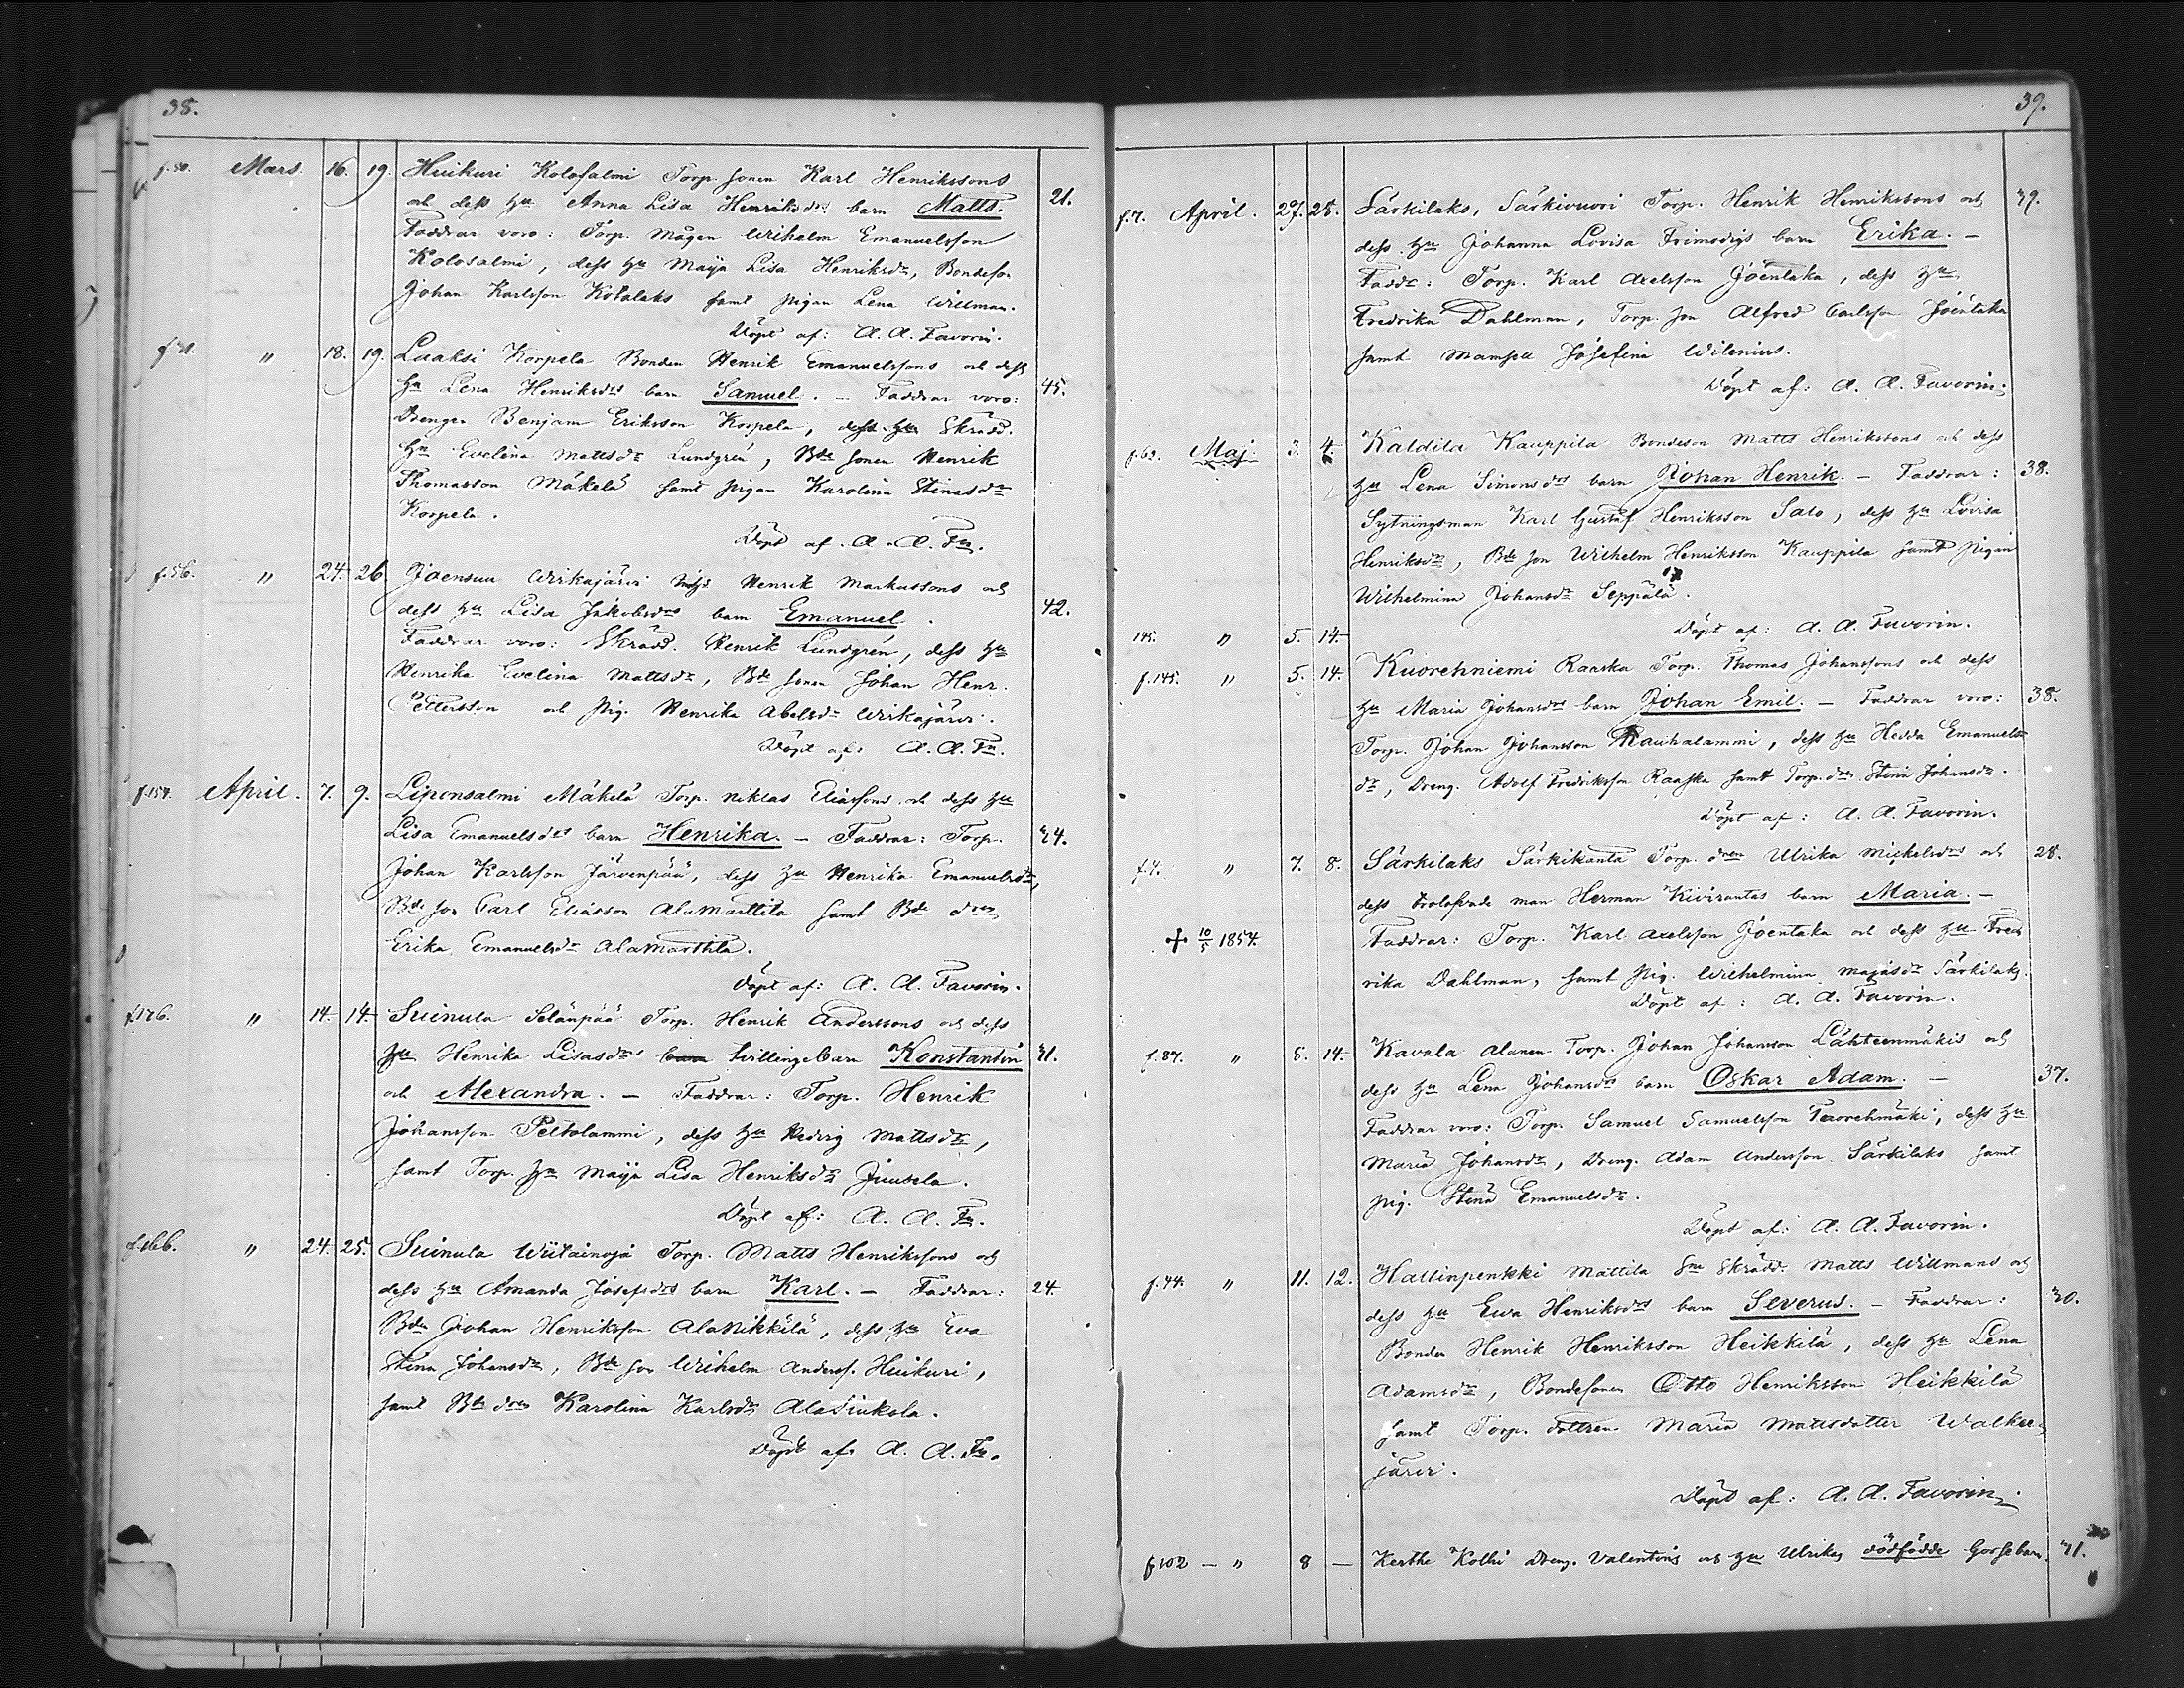 38.
f.50. Mars. 16. 19. Huikuri Kolosalmi Torp. sonen Karl Henrikssons
och dess hu Anna Lisa Henriksdrs barn Matts. 21.
Faddrar voro: Torp. mågen Wilhelm Emanuelsson
Kolosalmi, dess hu Maija Lisa Henriksdr, Bondeson
Johan Karlsson Kotalaks samt pigan Lena Willman.
Döpt af: A. A. Favorin.
f.21. " 18. 19. Laaksi Korpela Bonden Henrik Emanuelssons och dess
hu Lena Henriksdrs barn Samuel. — Faddrar voro: 45.
Drengen Benjam Eriksson Korpela, dess hu Skrädd.
hu Evelina Mattsdr Lundgrén, Bde sonen Henrik
Thomasson Mäkelä samt pigan Karolina Stinasdr
Korpela.
Döpt af. A. A. Fn.
f.56. " 24. 26. Joensuu Wirkajärvi Henrik Markussons och
dess hu Lisa Jakobsdrs barn Emanuel. 42.
Faddrar voro: Skrädd. Henrik Lundgrén, dess hu
Henrika Evelina Mattsdr, Bde sonen Johan Henr.
Pettersson och pig. Henrika Abelsdr Wirkajärvi.
Döpt af: A. A. Fn.
f.154. April. 7. 9. Liponsalmi Mäkelä Torp. Niklas Eliassons och dess hu
Lisa Emanuelsdrs barn Henrika. — Faddrar: Torp. 34.
Johan Karlsson Järvenpää, dess hu Henrika Emanuelsdr,
Bde son Carl Eliasson AlaMarttila samt Bde dren
Erika Emanuelsdr AlaMarttila.
Döpt af: A. A. Favorin.
f.176. " 14. 14. Suinula Selänpää Torp. Henrik Anderssons och dess
hu Henrika Lisasdrs barn tvillingebarn Konstantin 31.
och Alexandra. — Faddrar: Torp. Henrik
Johansson Peltolammi, dess hu Hedvig Mattsdr,
samt Torp. hu Maija Lisa Henriksdr Juusela.
Döpt af: A. A. Fn.
f.166. " 24. 25. Suinula Wiitainoja Torp. Matts Henrikssons och
dess hu Amanda Josefsdrs barn Karl. — Faddrar: 24.
Bden Johan Henriksson AlaNikkilä, dess hu Eva
Stina Johansdr, Bde son Wilhelm Anderss. Huikuri,
samt Bde dren Karolina Karlsdr AlaSiukola.
Döpt af: A. A. Fn.
39.
f.7. April. 27. 28. Särkilaks, Särkivuori Torp. Henrik Henrikssons och 39.
dess hu Johanna Lovisa Frimodigs barn Erika. —
Faddr: Torp. Karl Axelsson Joentaka, dess hu
Fredrika Dahlman, Torp. son Alfred Carlsson Joentaka
samt Mamsell Josefina Wilenius.
Döpt af: A. A. Favorin.
f.62. Maj. 3. 4. Kaldila Kauppila Bondeson Matts Henrikssons och dess
hu Lena Simonsdrs barn Johan Henrik. — Faddrar: 38.
Sytningsman Karl Gustaf Henriksson Salo, dess hu Lovisa
Henriksdr, Bde son Wilhelm Henriksson Kauppila samt pigan
Wilhelmina Johansdr Seppälä.
Döpt af: A. A. Favorin.
145. " 5. 14.
f.145. " 5. 14. Kuorehniemi Raaska Torp. Thomas Johanssons och dess
hu Maria Johansdrs barn Johan Emil. — Faddrar voro: 38.
Torp. Johan Johansson Rauhalammi, dess hu Hedda Emanuels
dr, Dreng. Adolf Fredriksson Raaska samt Torp. dren Stina Johansdr.
Döpt af: A. A. Favorin.
f.4. " 7. 8. Särkilaks Särkikanta Torp. dren Ulrika Mickelsdrs och 28.
dess trolofvade man Herman Kivirantas barn Maria. —
✝ 10/5 1854. Faddrar: Torp. Karl Axelsson Joentaka och dess hu Fred
rika Dahlman, samt pig. Wilhelmina Majasdr Särkilaks.
Döpt af: A. A. Favorin.
f.87. " 8. 14. Kavala Alanen Torp. Johan Johansson Lähteenmäkis och
dess hu Lena Johansdrs barn Oskar Adam. — 37.
Faddrar voro: Torp. Samuel Samuelsson Teerehmäki, dess hu
Maria Johansdr, Dreng. Adam Andersson Särkilaks samt
pig. Stina Emanuelsdr.
Döpt af: A. A. Favorin.
f.44. " 11. 12. Hallinpenkki Mattila Skrädd. Matts Willmans och
dess hu Ewa Henriksdrs barn Severus. — Faddrar: 30.
Bonden Henrik Henriksson Heikkilä, dess hu Lena
Adamsdr, Bondesonen Otto Henriksson Heikkilä
samt Torp. dottren Maria Mattsdotter Walkee-
järvi.
Döpt af: A. A. Favorin.
f102 — " 8 — Kerthe Kolhi Dreng. Valentins och hu Ulrikas dödfödde Gossebarn. 31.